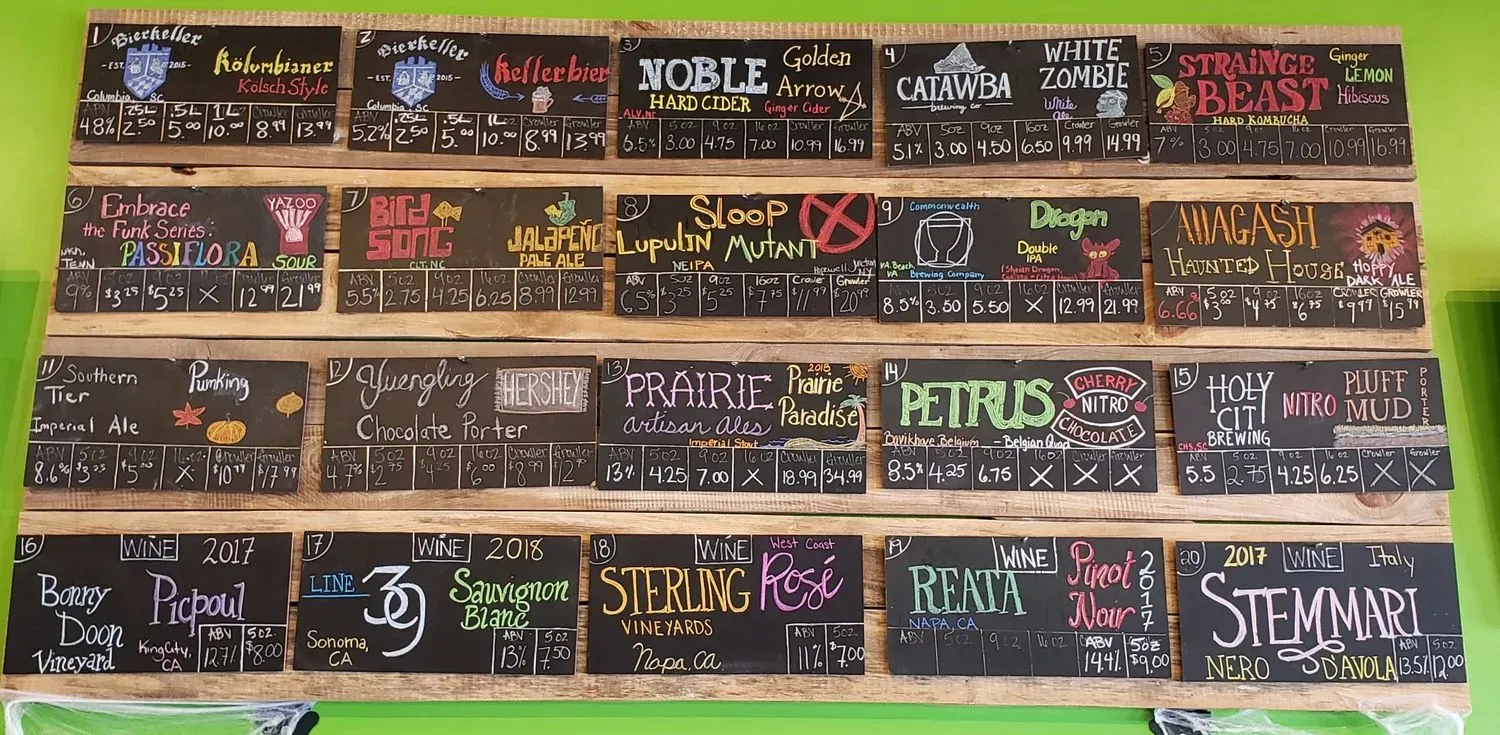 1 Bierkeller
-EST. 2015-
Columbia, SC
Kölumbianer
Kölsch Style
ABV .25L .5L 1L Crowler Growler
4.8% 2.50 5.00 10.00 8.99 13.99
2 Bierkeller
-EST. 2015-
Columbia, SC
Kellerbier
ABV .25L .5L 1L Crowler Growler
5.2% 2.50 5.00 10.00 8.99 13.99
3 NOBLE
HARD CIDER
AVL, NC
Golden
Arrow
Ginger Cider
ABV 5oz 9oz 16oz Crowler Growler
6.5% 3.00 4.75 7.00 10.99 16.99
4 CATAWBA
brewing co
WHITE
ZOMBIE
White
Ale
ABV 5oz 9oz 16oz Crowler Growler
5.1% 3.00 4.50 6.50 9.99 14.99
5 STRAINGE
BEAST
HARD KOMBUCHA
Ginger
LEMON
Hibiscus
ABV 5oz 9oz 16oz Crowler Growler
7% 3.00 4.75 7.00 10.99 16.99
6 Embrace
the Funk Series:
PASSIFLORA
TENN
YAZOO
SOUR
ABV 5oz 9oz 16oz Crowler Growler
9% $3.25 $5.25 X 12.99 21.99
7 Bird
SONG
CLT, NC
JALAPEÑO
PALE ALE
ABV 5oz 9oz 16oz Crowler Growler
5.5% 2.75 4.25 6.25 8.99 12.99
8 SLOOP
LUPULIN MUTANT
NEIPA
Hopewell Junction
NY
ABV 5oz 9oz 16oz Crowler Growler
6.5% $3.25 $5.25 $7.75 $11.99 $20.99
9 Commonwealth
Brewing Company
VA. Beach
VA
Dragon
Double
IPA
ABV 5oz 9oz 16oz Crowler Growler
8.5% 3.50 5.50 X 12.99 21.99
AllAGASH
HAUNTED HOUSE
HOPPY
DARK ALE
ABV 5oz 9oz 16oz CROWLER GROWLER
6.66% $3.00 $4.75 $6.75 $9.99 $15.99
11 Southern
Tier
Pumking
Imperial Ale
ABV 5oz 9oz 16oz Crowler Growler
8.6% $3.25 $5.00 X $10.99 $17.99
12 Yuengling
HERSHEY
Chocolate Porter
ABV 5oz 9oz 16oz Crowler Growler
4.7% $2.75 $4.25 $6.00 $8.99
13 PRAIRIE
artisan ales
Imperial Stout
Prairie
Paradise
ABV 5oz 9oz 16oz Crowler Growler
13% 4.25 7.00 X 18.99 34.99
14 PETRUS
CHERRY
NITRO
CHOCOLATE
Belgium -Belgian Quad
ABV 5oz 9oz 16oz Crowler Growler
8.5% 4.25 6.75 X X X
15 HOLY
CITY
BREWING
CHS, SC
NITRO
PLUFF
MUD
PORTER
ABV 5oz 9oz 16oz Crowler Growler
5.5 2.75 4.25 6.25 X X
16 WINE 2017
Bonny
Doon
Vineyard
Picpoul
King City,
CA
ABV 5oz
12.7% $8.00
17 WINE 2018
LINE 39
Sauvignon
Blanc
Sonoma,
CA
ABV 5oz
13% 7.50
18 WINE
West Coast
STERLING
VINEYARDS
Rosé
Napa, ca.
ABV 5oz.
11% $7.00
19 WINE
REATA
NAPA, CA
Pinot
Noir
2017
ABV 5oz 9oz 16oz ABV 5oz
14.4% $9.00
20 2017 WINE Italy
STEMMARI
NERO D'AVOLA
ABV 5oz
13.5% 12.00